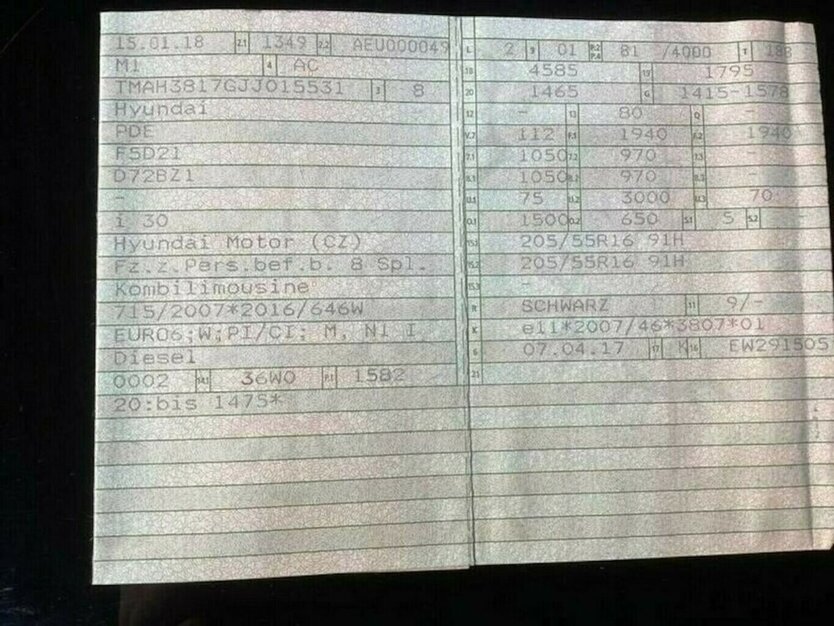 15.01.18 2.1 1349 2.2 AEU000049
M1 4 AC
TMAH3817GJJ015531 3 8
Hyundai
PDE
F5D21
D72BZ1
-
i 30
Hyundai Motor (CZ)
Fz.z.Pers.bef.b. 8 Spl.
Kombilimousine
715/2007*2016/646W
EURO6;W;PI/CI; M, N1 I
Diesel
0002 14.1 36W0 P.1 1582
20:bis 1475*
L 2 9 01 P.2 P.4 81 /4000 T 188
18 4585 19 1795
20 1465 G 1415-1578
12 - 13 80 Q -
V.7 112 F.1 1940 F.2 1940
7.1 1050 7.2 970 7.3 -
8.1 1050 8.2 970 8.3 -
U.1 75 U.2 3000 U.3 70
O.1 1500 O.2 650 S.1 5 S.2 -
15.1 205/55R16 91H
15.2 205/55R16 91H
15.3 -
R SCHWARZ 11 9/-
K e11*2007/46*3807*01
6 07.04.17 17 K 16 EW291505
21